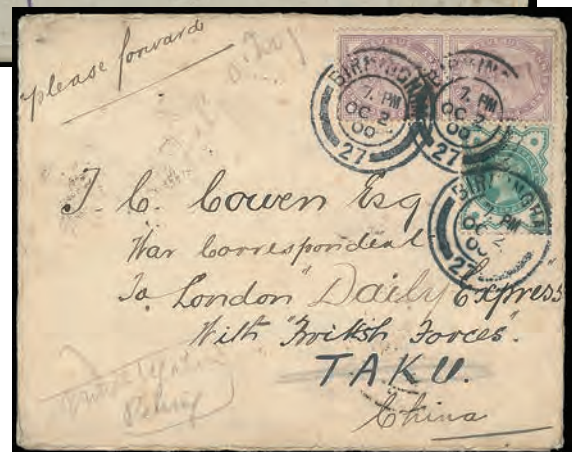 please forward
BIRMINGHAM
7. PM
OC 2
00
27
BIRMINGHAM
7. PM
OC 2
00
27
BIRMINGHAM
7. PM
OC 2
00
27
T. C. Cowen Esq
War Correspondent
To London "Daily Express"
With "British Forces".
TAKU.
China
Peking